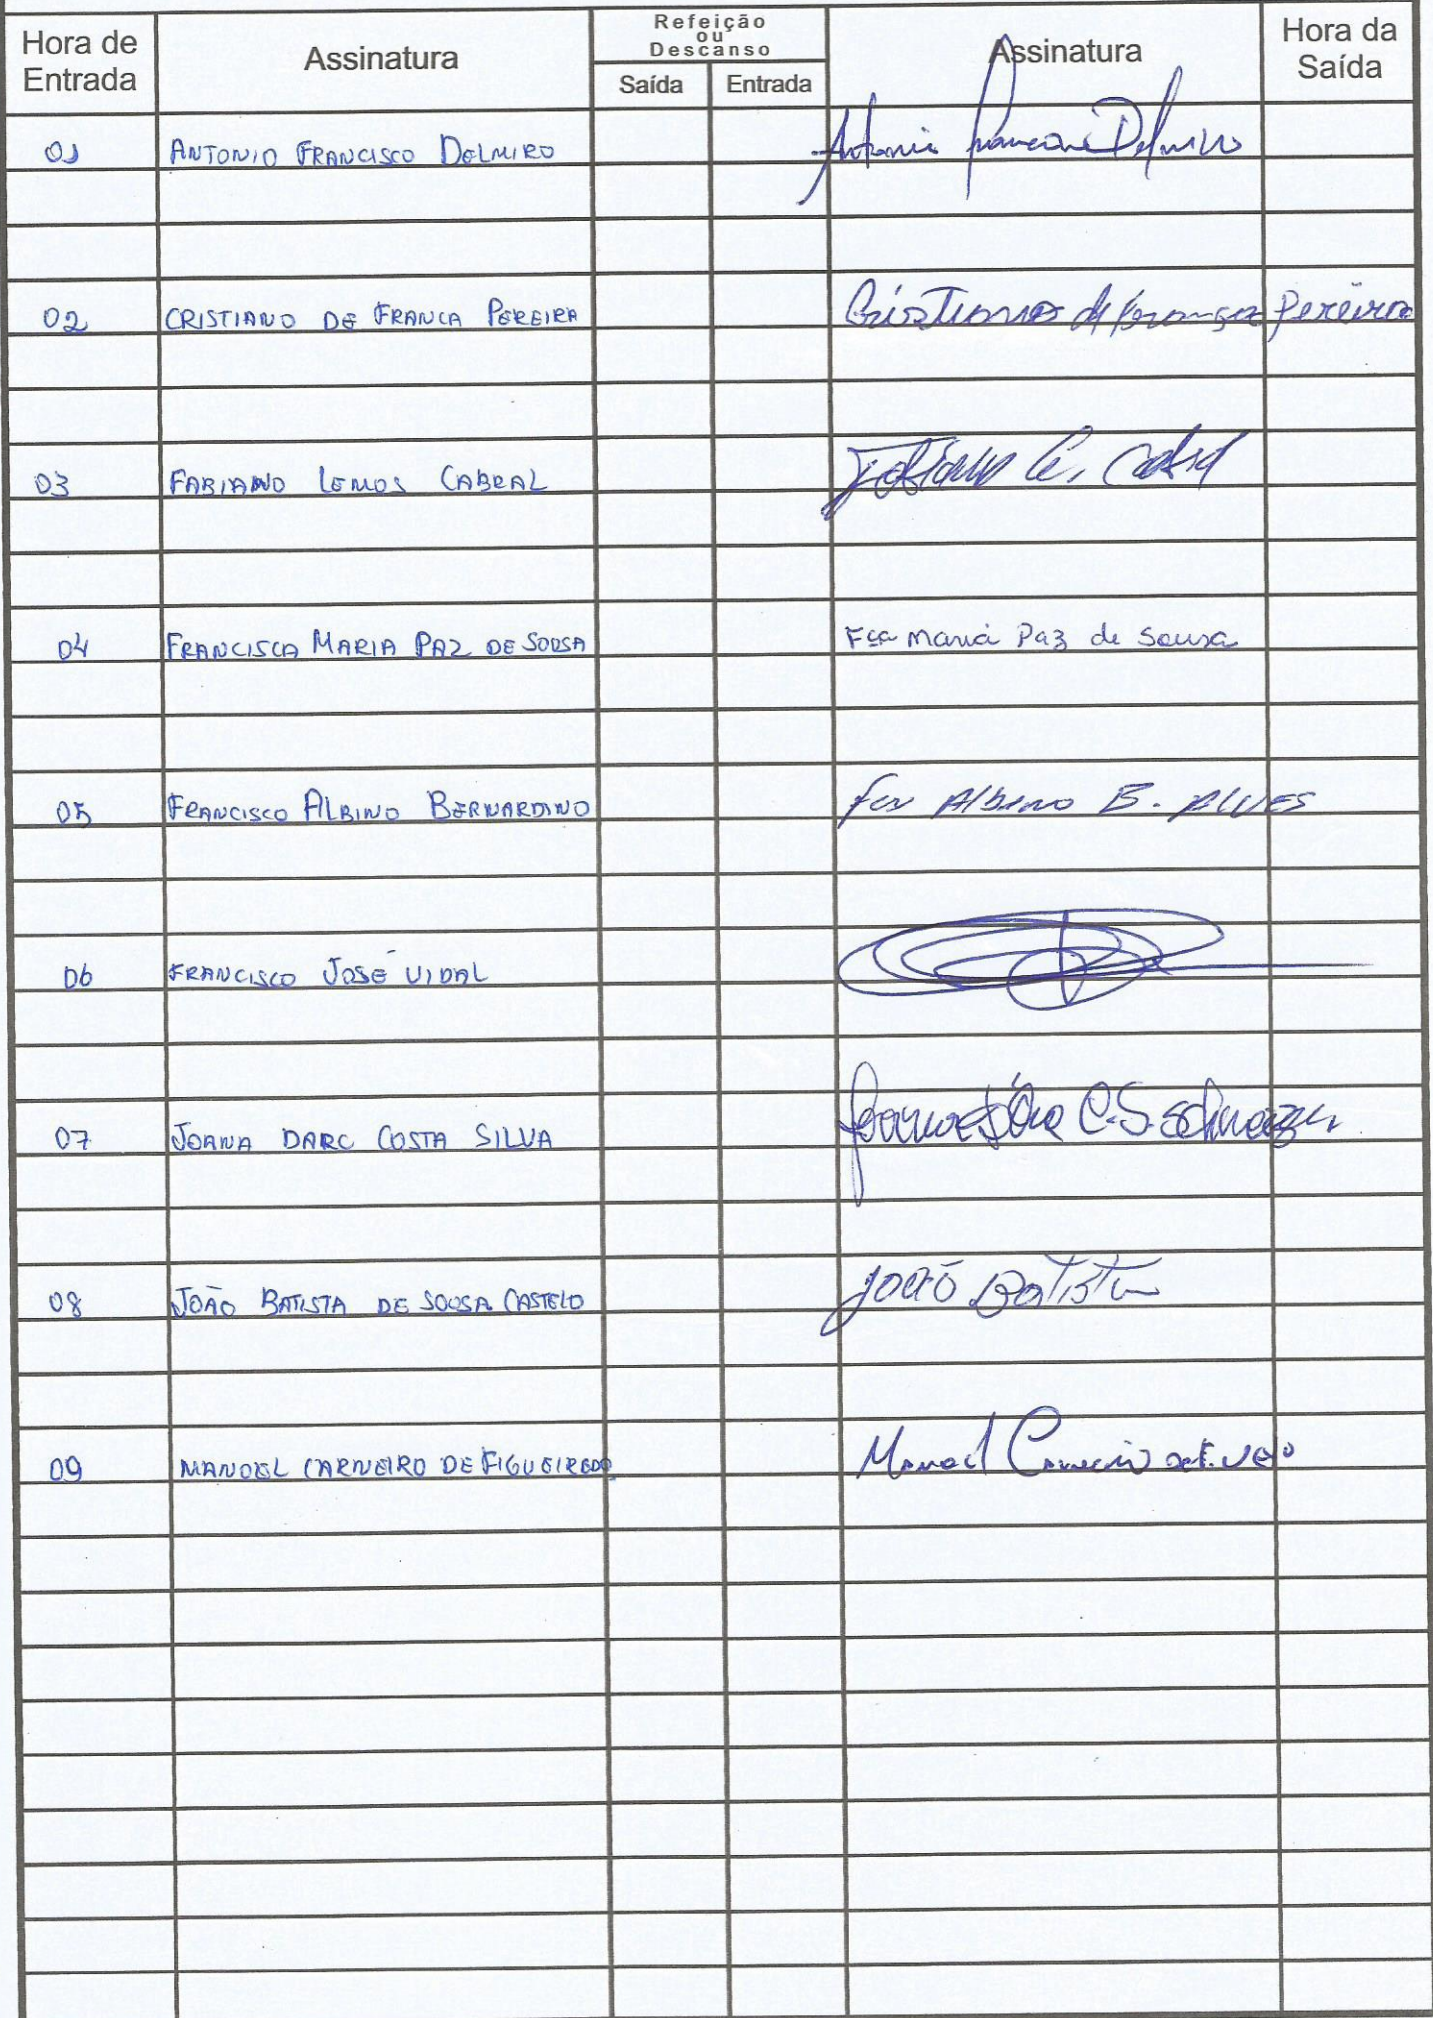 Hora de Entrada Assinatura Refeição ou Descanso Saída Entrada Assinatura Hora da Saída
01 ANTONIO FRANCISCO DELMIRO Antonio Francisco Delmiro
02 CRISTIANO DE FRANCA PEREIRA Cristiano de França Pereira
03 FABIANO LEMOS CABRAL Fabiano L. Cabral
04 FRANCISCA MARIA PAZ DE SOUSA Fca Maria Paz de Sousa
05 FRANCISCO ALBINO BERNARDINO Fco Albino B. ALVES
06 FRANCISCO JOSÉ VIDAL
07 JOANA DARC COSTA SILVA C. S.
08 JOÃO BATISTA DE SOUSA CASTELO João Batista
09 MANOEL CARNEIRO DE FIGUEIREDO Manoel Carneiro